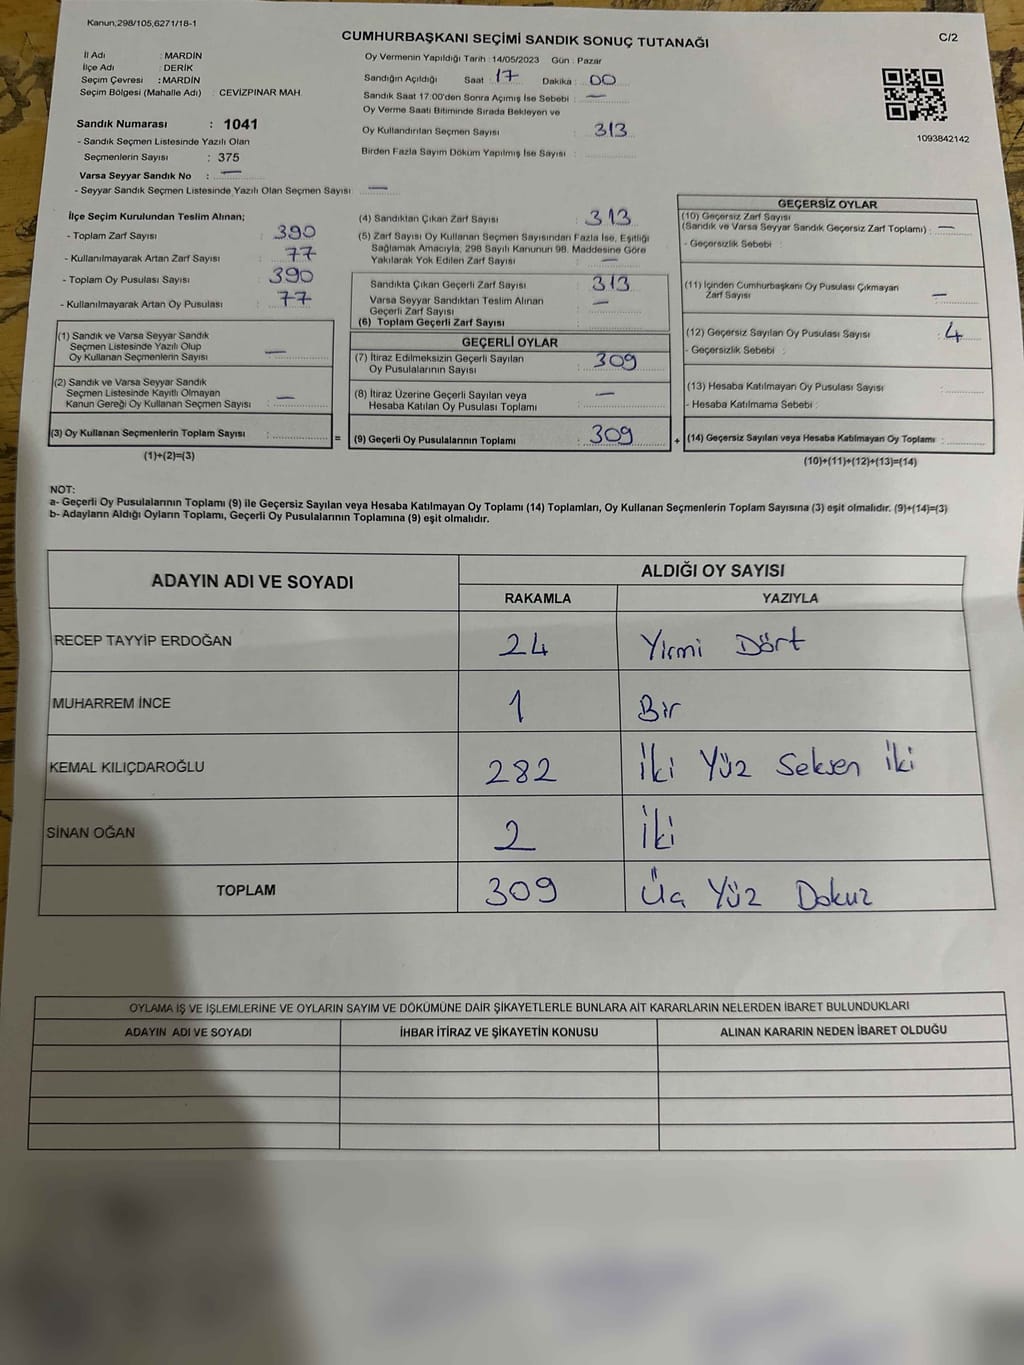 Kanun,298/105,6271/18-1
C/2
CUMHURBAŞKANI SEÇİMİ SANDIK SONUÇ TUTANAĞI
İl Adı : MARDİN
İlçe Adı : DERİK
Seçim Çevresi : MARDİN
Seçim Bölgesi (Mahalle Adı) : CEVİZPINAR MAH.
Oy Vermenin Yapıldığı Tarih : 14/05/2023 Gün : Pazar
Sandığın Açıldığı Saat : 17 Dakika : 00
Sandık Saat 17:00'den Sonra Açımış İse Sebebi : —
Oy Verme Saati Bitiminde Sırada Bekleyen ve
Oy Kullandırılan Seçmen Sayısı : 313
Birden Fazla Sayım Döküm Yapılmış İse Sayısı :
1093842142
Sandık Numarası : 1041
- Sandık Seçmen Listesinde Yazılı Olan
Seçmenlerin Sayısı : 375
Varsa Seyyar Sandık No : —
- Seyyar Sandık Seçmen Listesinde Yazılı Olan Seçmen Sayısı : —
İlçe Seçim Kurulundan Teslim Alınan;
- Toplam Zarf Sayısı : 390
- Kullanılmayarak Artan Zarf Sayısı : 77
- Toplam Oy Pusulası Sayısı : 390
- Kullanılmayarak Artan Oy Pusulası : 77
(1) Sandık ve Varsa Seyyar Sandık
Seçmen Listesinde Yazılı Olup
Oy Kullanan Seçmenlerin Sayısı : —
(2) Sandık ve Varsa Seyyar Sandık
Seçmen Listesinde Kayıtlı Olmayan
Kanun Gereği Oy Kullanan Seçmen Sayısı : —
(3) Oy Kullanan Seçmenlerin Toplam Sayısı :
(1)+(2)=(3)
=
(4) Sandıktan Çıkan Zarf Sayısı : 313
(5) Zarf Sayısı Oy Kullanan Seçmen Sayısından Fazla İse, Eşitliği
Sağlamak Amacıyla, 298 Sayılı Kanunun 98. Maddesine Göre
Yakılarak Yok Edilen Zarf Sayısı : —
Sandıkta Çıkan Geçerli Zarf Sayısı : 313
Varsa Seyyar Sandıktan Teslim Alınan
Geçerli Zarf Sayısı : —
(6) Toplam Geçerli Zarf Sayısı :
GEÇERLİ OYLAR
(7) İtiraz Edilmeksizin Geçerli Sayılan
Oy Pusulalarının Sayısı : 309
(8) İtiraz Üzerine Geçerli Sayılan veya
Hesaba Katılan Oy Pusulası Toplamı : —
(9) Geçerli Oy Pusulalarının Toplamı : 309
+
GEÇERSİZ OYLAR
(10) Geçersiz Zarf Sayısı
(Sandık ve Varsa Seyyar Sandık Geçersiz Zarf Toplamı) : —
- Geçersizlik Sebebi :
(11) İçinden Cumhurbaşkanı Oy Pusulası Çıkmayan
Zarf Sayısı : —
(12) Geçersiz Sayılan Oy Pusulası Sayısı : 4
- Geçersizlik Sebebi :
(13) Hesaba Katılmayan Oy Pusulası Sayısı :
- Hesaba Katılmama Sebebi :
(14) Geçersiz Sayılan veya Hesaba Katılmayan Oy Toplamı :
(10)+(11)+(12)+(13)=(14)
NOT:
a- Geçerli Oy Pusulalarının Toplamı (9) ile Geçersiz Sayılan veya Hesaba Katılmayan Oy Toplamı (14) Toplamları, Oy Kullanan Seçmenlerin Toplam Sayısına (3) eşit olmalıdır. (9)+(14)=(3)
b- Adayların Aldığı Oyların Toplamı, Geçerli Oy Pusulalarının Toplamına (9) eşit olmalıdır.
ADAYIN ADI VE SOYADI
ALDIĞI OY SAYISI
RAKAMLA YAZIYLA
RECEP TAYYİP ERDOĞAN 24 Yirmi Dört
MUHARREM İNCE 1 Bir
KEMAL KILIÇDAROĞLU 282 İki Yüz Seksen İki
SİNAN OĞAN 2 İki
TOPLAM 309 Üç Yüz Dokuz
OYLAMA İŞ VE İŞLEMLERİNE VE OYLARIN SAYIM VE DÖKÜMÜNE DAİR ŞİKAYETLERLE BUNLARA AİT KARARLARIN NELERDEN İBARET BULUNDUKLARI
ADAYIN ADI VE SOYADI İHBAR İTİRAZ VE ŞİKAYETİN KONUSU ALINAN KARARIN NEDEN İBARET OLDUĞU